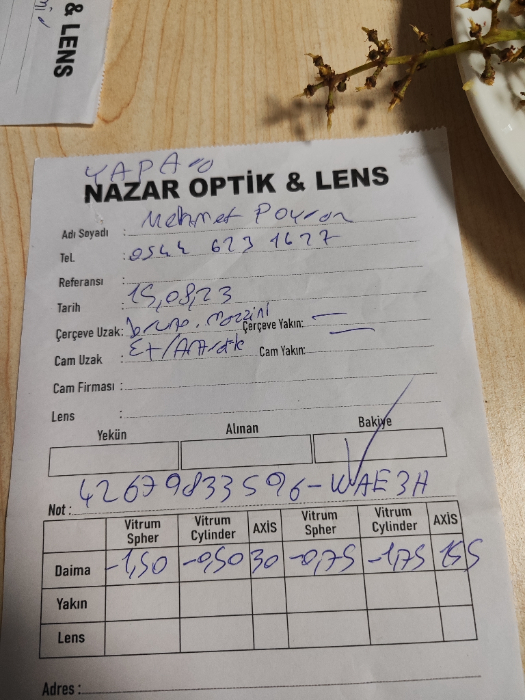 & LENS
YAPA
NAZAR OPTİK & LENS
Adı Soyadı : Mehmet Poyraz
Tel. : 0544 623 1677
Referansı :
Tarih : 15,08,23
Çerçeve Uzak: bruno. mazzini Çerçeve Yakın: —
Cam Uzak : Cam Yakın: —
Cam Firması :
Lens :
Yekün Alınan Bakiye
Not : 42679833596-WAE3H
Vitrum Spher Vitrum Cylinder AXİS Vitrum Spher Vitrum Cylinder AXİS
Daima -1,50 -0,50 30 -0,75 -1,75 155
Yakın
Lens
Adres :